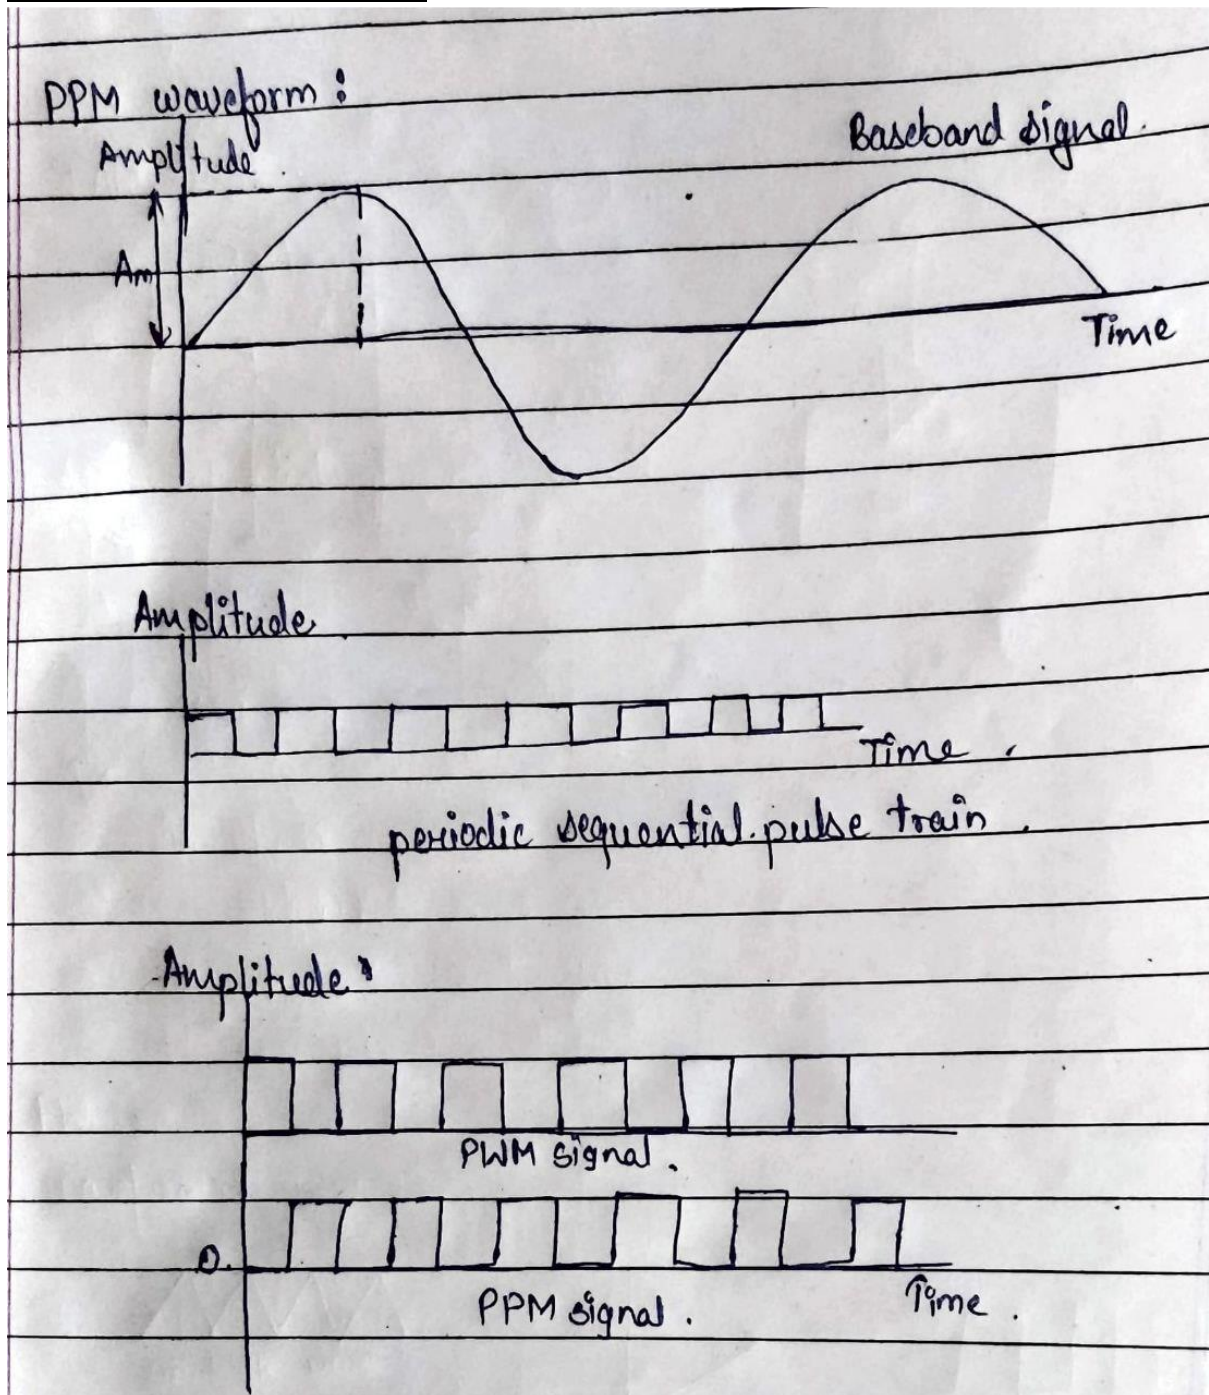 PPM waveform :
Amplitude
Baseband signal.
Am
Time
Amplitude
Time
periodic sequential pulse train.
Amplitude
PWM signal.
0.
PPM signal.
Time.